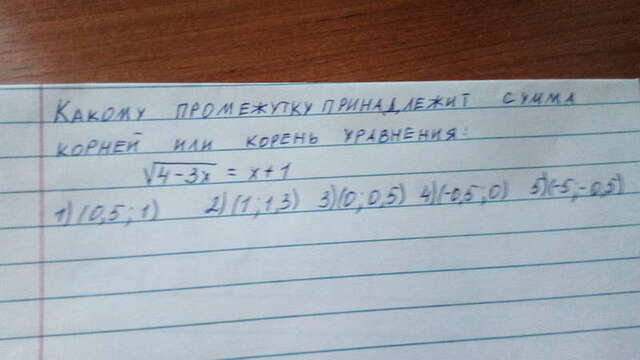 Какому промежутку принадлежит сумма
корней или корень уравнения:
√4-3x = x+1
1) (0,5; 1) 2) (1; 1,3) 3) (0; 0,5) 4) (-0,5; 0) 5) (-5; -0,5)